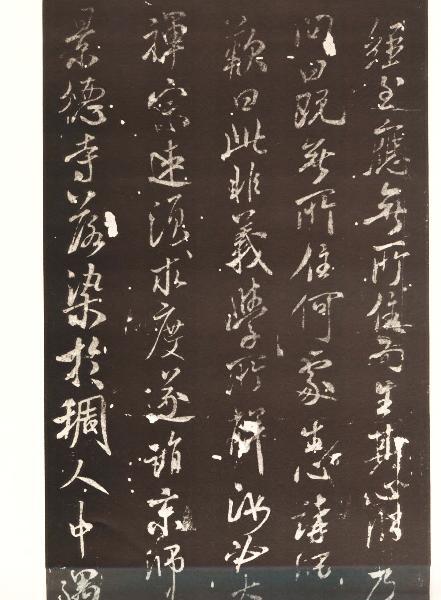 經至應無所住而生斯心師乃
問曰既無所住何處生心講
歎曰此非義學所解汝必大
禪宗速須求度遂詣京師
景德寺落染於稠人中遇